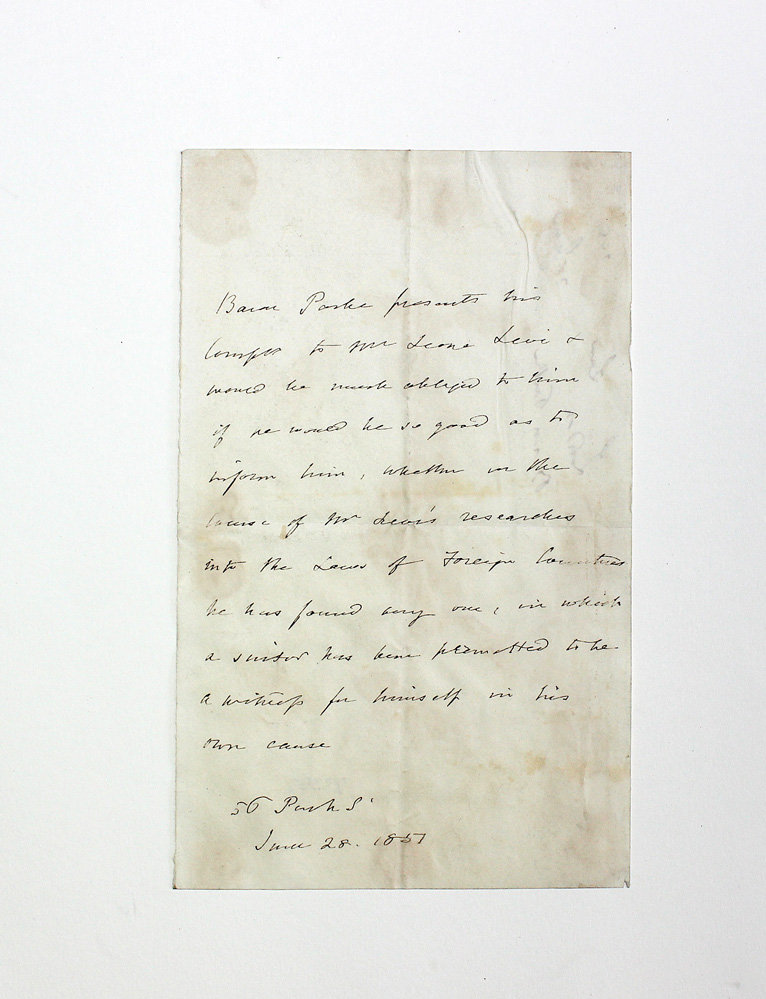 Baron Parke presents his
Compts to Mr Leone Levi &
would be much obliged to him
if he would be so good as to
inform him, whether in the
course of Mr Levi's researches
into the Laws of Foreign Countries
he has found any one, in which
a suitor has been permitted to be
a witness for himself in his
own cause
56 Park St
June 28. 1851